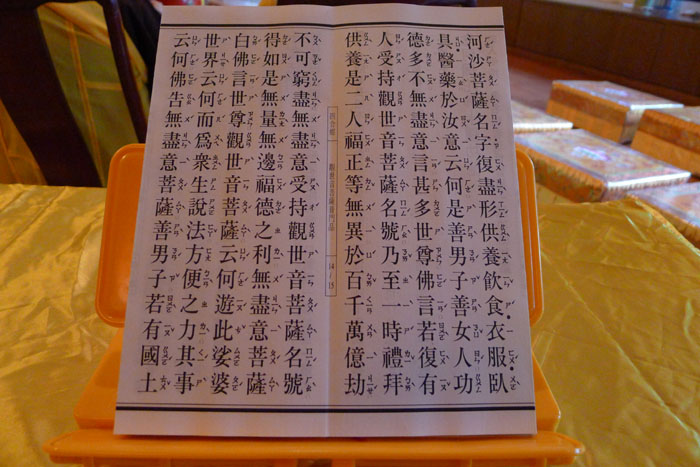 河沙菩薩名字復盡形供養飲食衣服臥
具醫藥於汝意云何是善男子善女人功
德多不無盡意言甚多世尊佛言若復有
人受持觀世音菩薩名號乃至一時禮拜
供養是二人福正等無異於百千萬億劫
14/15
不可窮盡無盡意受持觀世音菩薩名號
得如是無量無邊福德之利無盡意菩薩
白佛言世尊觀世音菩薩云何遊此娑婆
世界云何而爲衆生說法方便之力其事
云何佛告無盡意菩薩善男子若有國土